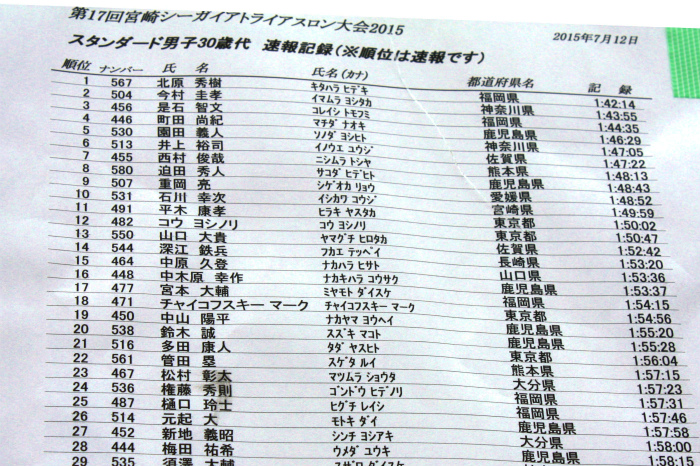 第17回宮崎シーガイアトライアスロン大会2015
2015年7月12日
スタンダード男子30歳代 速報記録(※順位は速報です)
順位 ナンバー 氏 名 氏名(カナ) 都道府県名 記 録
1 567 北原 秀樹 キタハラ ヒデキ 福岡県 1:42:14
2 504 今村 圭孝 イマムラ ヨシタカ 神奈川県 1:43:55
3 456 是石 智文 コレイシ トモフミ 福岡県 1:44:35
4 446 町田 尚紀 マチダ ナオキ 鹿児島県 1:46:29
5 530 園田 義人 ソノダ ヨシヒト 神奈川県 1:47:05
6 513 井上 裕司 イノウエ ユウジ 佐賀県 1:47:22
7 455 西村 俊哉 ニシムラ トシヤ 熊本県 1:48:13
8 580 迫田 秀人 サコダ ヒデヒト 鹿児島県 1:48:43
9 507 重岡 亮 シゲオカ リョウ 愛媛県 1:48:52
10 531 石川 幸次 イシカワ コウジ 宮崎県 1:49:59
11 491 平木 康孝 ヒラキ ヤスタカ 東京都 1:50:02
12 482 コウ ヨシノリ コウ ヨシノリ 東京都 1:50:47
13 550 山口 大貴 ヤマグチ ヒロタカ 佐賀県 1:52:42
14 544 深江 鉄兵 フカエ テッペイ 長崎県 1:53:20
15 464 中原 久登 ナカハラ ヒサト 山口県 1:53:36
16 448 中木原 幸作 ナカキハラ コウサク 鹿児島県 1:53:37
17 477 宮本 大輔 ミヤモト ダイスケ 福岡県 1:54:15
18 471 チャイコフスキー マーク チャイコフスキー マーク 東京都 1:54:56
19 450 中山 陽平 ナカヤマ ヨウヘイ 鹿児島県 1:55:20
20 538 鈴木 誠 スズキ マコト 鹿児島県 1:55:28
21 516 多田 康人 タダ ヤスヒト 東京都 1:56:04
22 561 管田 塁 スゲタ ルイ 熊本県 1:57:15
23 467 松村 彰太 マツムラ ショウタ 大分県 1:57:23
24 536 権藤 秀則 ゴンドウ ヒデノリ 福岡県 1:57:31
25 487 樋口 玲士 ヒグチ レイシ 福岡県 1:57:46
26 514 元起 大 モトキ ダイ 鹿児島県 1:57:58
27 452 新地 義昭 シンチ ヨシアキ 大分県 1:58:00
28 444 梅田 祐希 ウメダ ユウキ 福岡県 1:58:15
29 535 須澤 大輔 スザワ ダイスケ